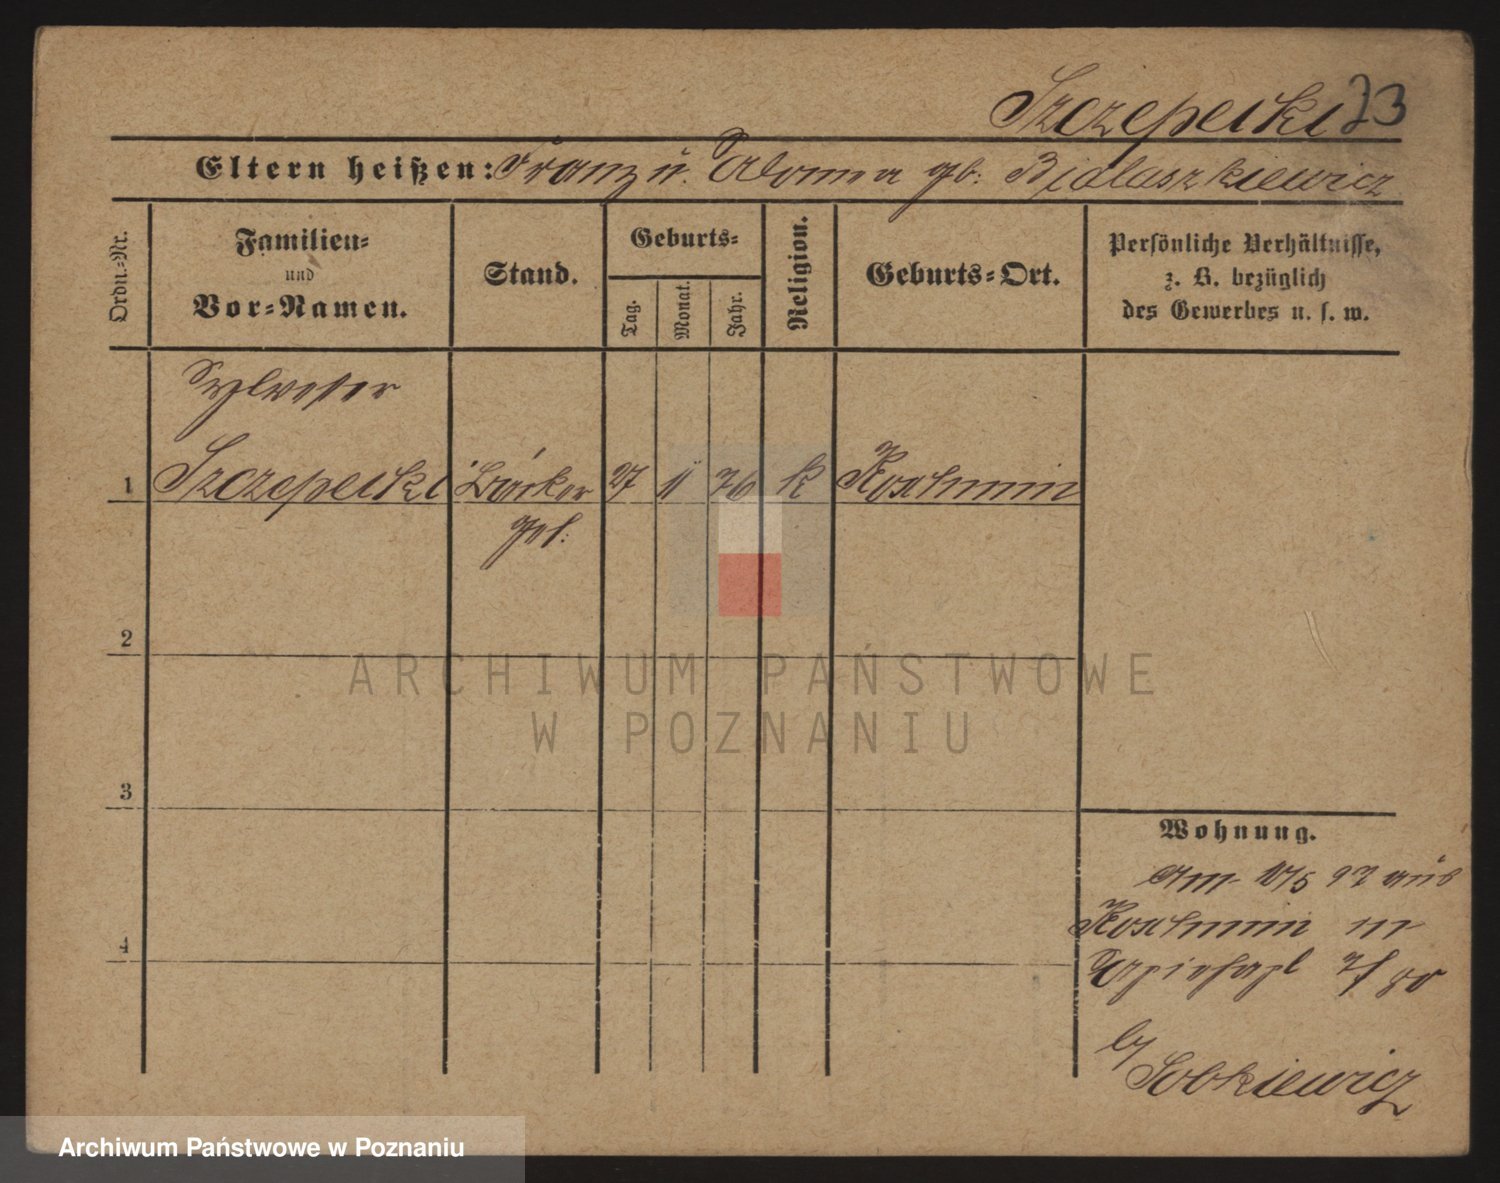 Szczepecki 73
Eltern heißen: Franz u. gb: Bialaszkiewicz
Ordn.-Nr.
Familien-
und
Vor-Namen.
Stand.
Geburts-
Tag.
Monat.
Jahr.
Religion.
Geburts-Ort.
Persönliche Verhältnisse,
z. B. bezüglich
des Gewerbes u. s. w.
Sylvester
1 Szczepecki Bäcker 27 11 76 k Koschmin
2
3
4
Wohnung.
Am 97 aus
Koschmin in
b/ Sobkiewicz
ARCHIWUM PAŃSTWOWE
W POZNANIU
Archiwum Państwowe w Poznaniu